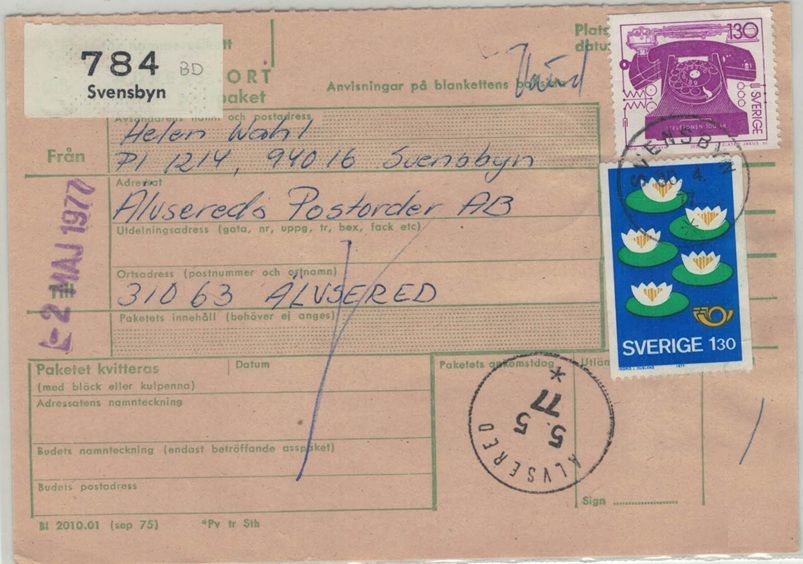 784 BD
Svensbyn
ORT
paket
Anvisningar på blankettens
Plats
datu
130
SVERIGE
SVENSBYN
4.
77
Från
Avsändarens namn och postadress
Helen Wahl
Pl 1214, 94016 Svensbyn
Adressat
Älvsereds Postorder AB
Utdelningsadress (gata, nr, uppg, tr, box, fack etc)
Ortsadress (postnummer och ortnamn)
Till
31063 ÄLVSERED
Paketets innehåll (behöver ej anges)
-2 MAJ 1977
SVERIGE 130
Paketet kvitteras
(med bläck eller kulpenna)
Datum
Paketets ankomstdag
Utlän
Adressatens namnteckning
Budets namnteckning (endast beträffande asspaket)
Budets postadress
ÄLVSERED
5. 5
77
Sign
Bl 2010.01 (sep 75) *Pv tr Sth